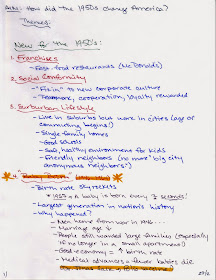 Aim: How did the 1950s change America?
Themes:
New for the 1950s:
1. Franchises
- Fast food restaurants (McDonalds)
2. Social Conformity
- "Fit in" to new corporate culture
- Teamwork, cooperation, loyalty rewarded
3. Suburban Lifestyle
- Live in suburbs but work in cities (age of commuting begins!)
- Single family homes
- Good schools
- Safe, healthy environment for kids
- Friendly neighbors (no more big city anonymous neighbors?)
4. "Baby Boom"
- Birth rate skyrockets
- a baby is born every 7 seconds!
- Largest generation in nation's history
- Why happened?
- Men home from war in
- Marriage age ↓
- People still wanted large families (especially if no longer in a small apartment!)
- Good economy = ↑ birth rate
- Medical advances = fewer babies die